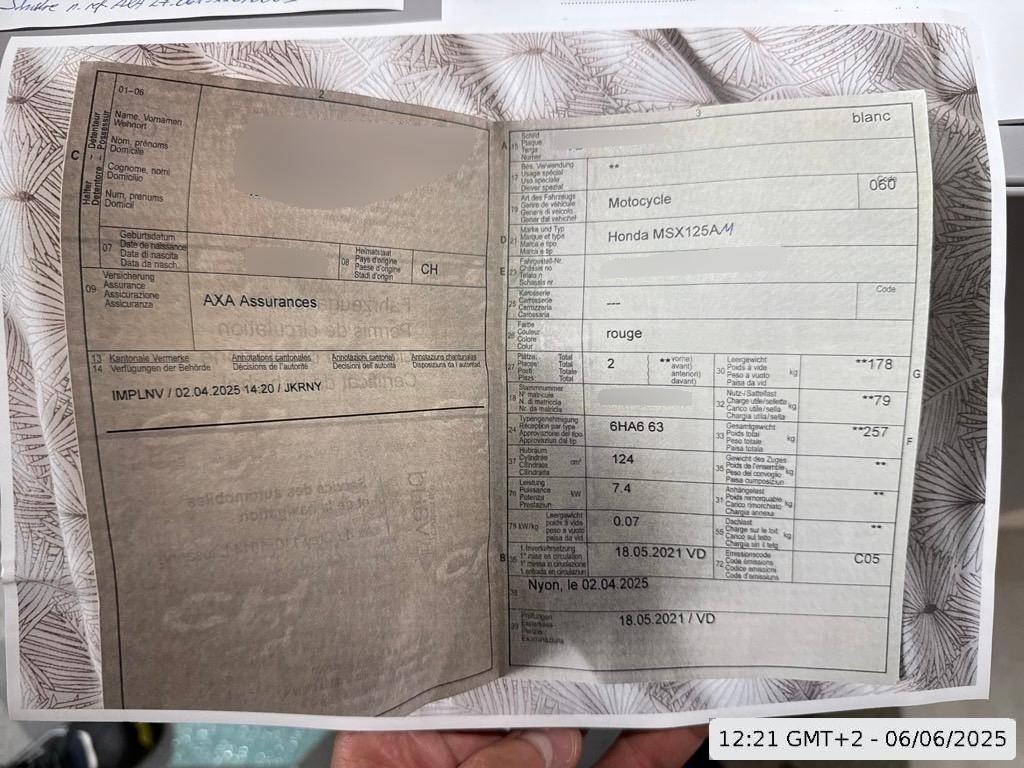 01-06
2
3
C
Halter
Detentore
Détenteur
Possessur
Name, Vornamen
Wohnort
Nom, prénoms
Domicile
Cognome, nomi
Domicilio
Num, prenums
Domicil
07
Geburtsdatum
Date de naissance
Data di nascita
Data da nasch.
08
Heimatstaat
Pays d'origine
Paese d'origine
Stadi d'origin
CH
09
Versicherung
Assurance
Assicurazione
Assicuranza
AXA Assurances
13 Kantonale Vermerke
Annotations cantonales
Annotazioni cantonali
Annotaziuns chantunalas
14 Verfügungen der Behörde
Décisions de l'autorité
Decisioni dell'autorità
Disposiziuns da l'autoritad
IMPLNV / 02.04.2025 14:20 / JKRNY
blanc
A
15
Schild
Plaque
Targa
Numer
17
Bes. Verwendung
Usage spécial
Uso speciale
Diever spezial
**
19
Art des Fahrzeugs
Genre de véhicule
Genere di veicolo
Gener dal vehichel
Motocycle
Code
060
D
21
Marke und Typ
Marque et type
Marca e tipo
Marca e tip
Honda MSX125AM
E
23
Fahrgestell-Nr.
Châssis no
Telaio n.
Schassis nr.
25
Karosserie
Carrosserie
Carrozzeria
Carossaria
---
Code
26
Farbe
Couleur
Colore
Colur
rouge
27
Plätze: Total
Places: Total
Posti: Totale
Plazs: Total
2
** vorne)
avant)
anteriori)
davant)
30
Leergewicht
Poids à vide
Peso a vuoto
Paisa da vid
kg
**178
G
18
Stammnummer
N° matricule
N. di matricola
Nr. da matricla
32
Nutz-/Sattellast
Charge utile/sellette
Carico utile/sella
Chargia utila/sella
kg
**79
24
Typengenehmigung
Réception par type
Approvazione del tipo
Approvaziun dal tip
6HA6 63
33
Gesamtgewicht
Poids total
Peso totale
Paisa totala
kg
**257
F
37
Hubraum
Cylindrée
Cilindrata
Cilindrada
cm³
124
35
Gewicht des Zuges
Poids de l'ensemble
Peso del convoglio
Paisa cumposiziun
kg
**
76
Leistung
Puissance
Potenza
Prestaziun
kW
7.4
31
Anhängelast
Poids remorquable
Carico rimorchiato
Chargia annexa
kg
**
78 kW/kg
Leergewicht
poids à vide
peso a vuoto
paisa da vid
0.07
55
Dachlast
Charge sur le toit
Carico sul tetto
Chargia sin il tetg
kg
**
B
36
1. Inverkehrsetzung
1re mise en circulation
1a messa in circolazione
1. entrada en circulaziun
18.05.2021 VD
72
Emissionscode
Code émissions
Codice emissioni
Code d'emissiuns
C05
38
Nyon, le 02.04.2025
39
Prüfungen
18.05.2021 / VD
12:21 GMT+2 - 06/06/2025